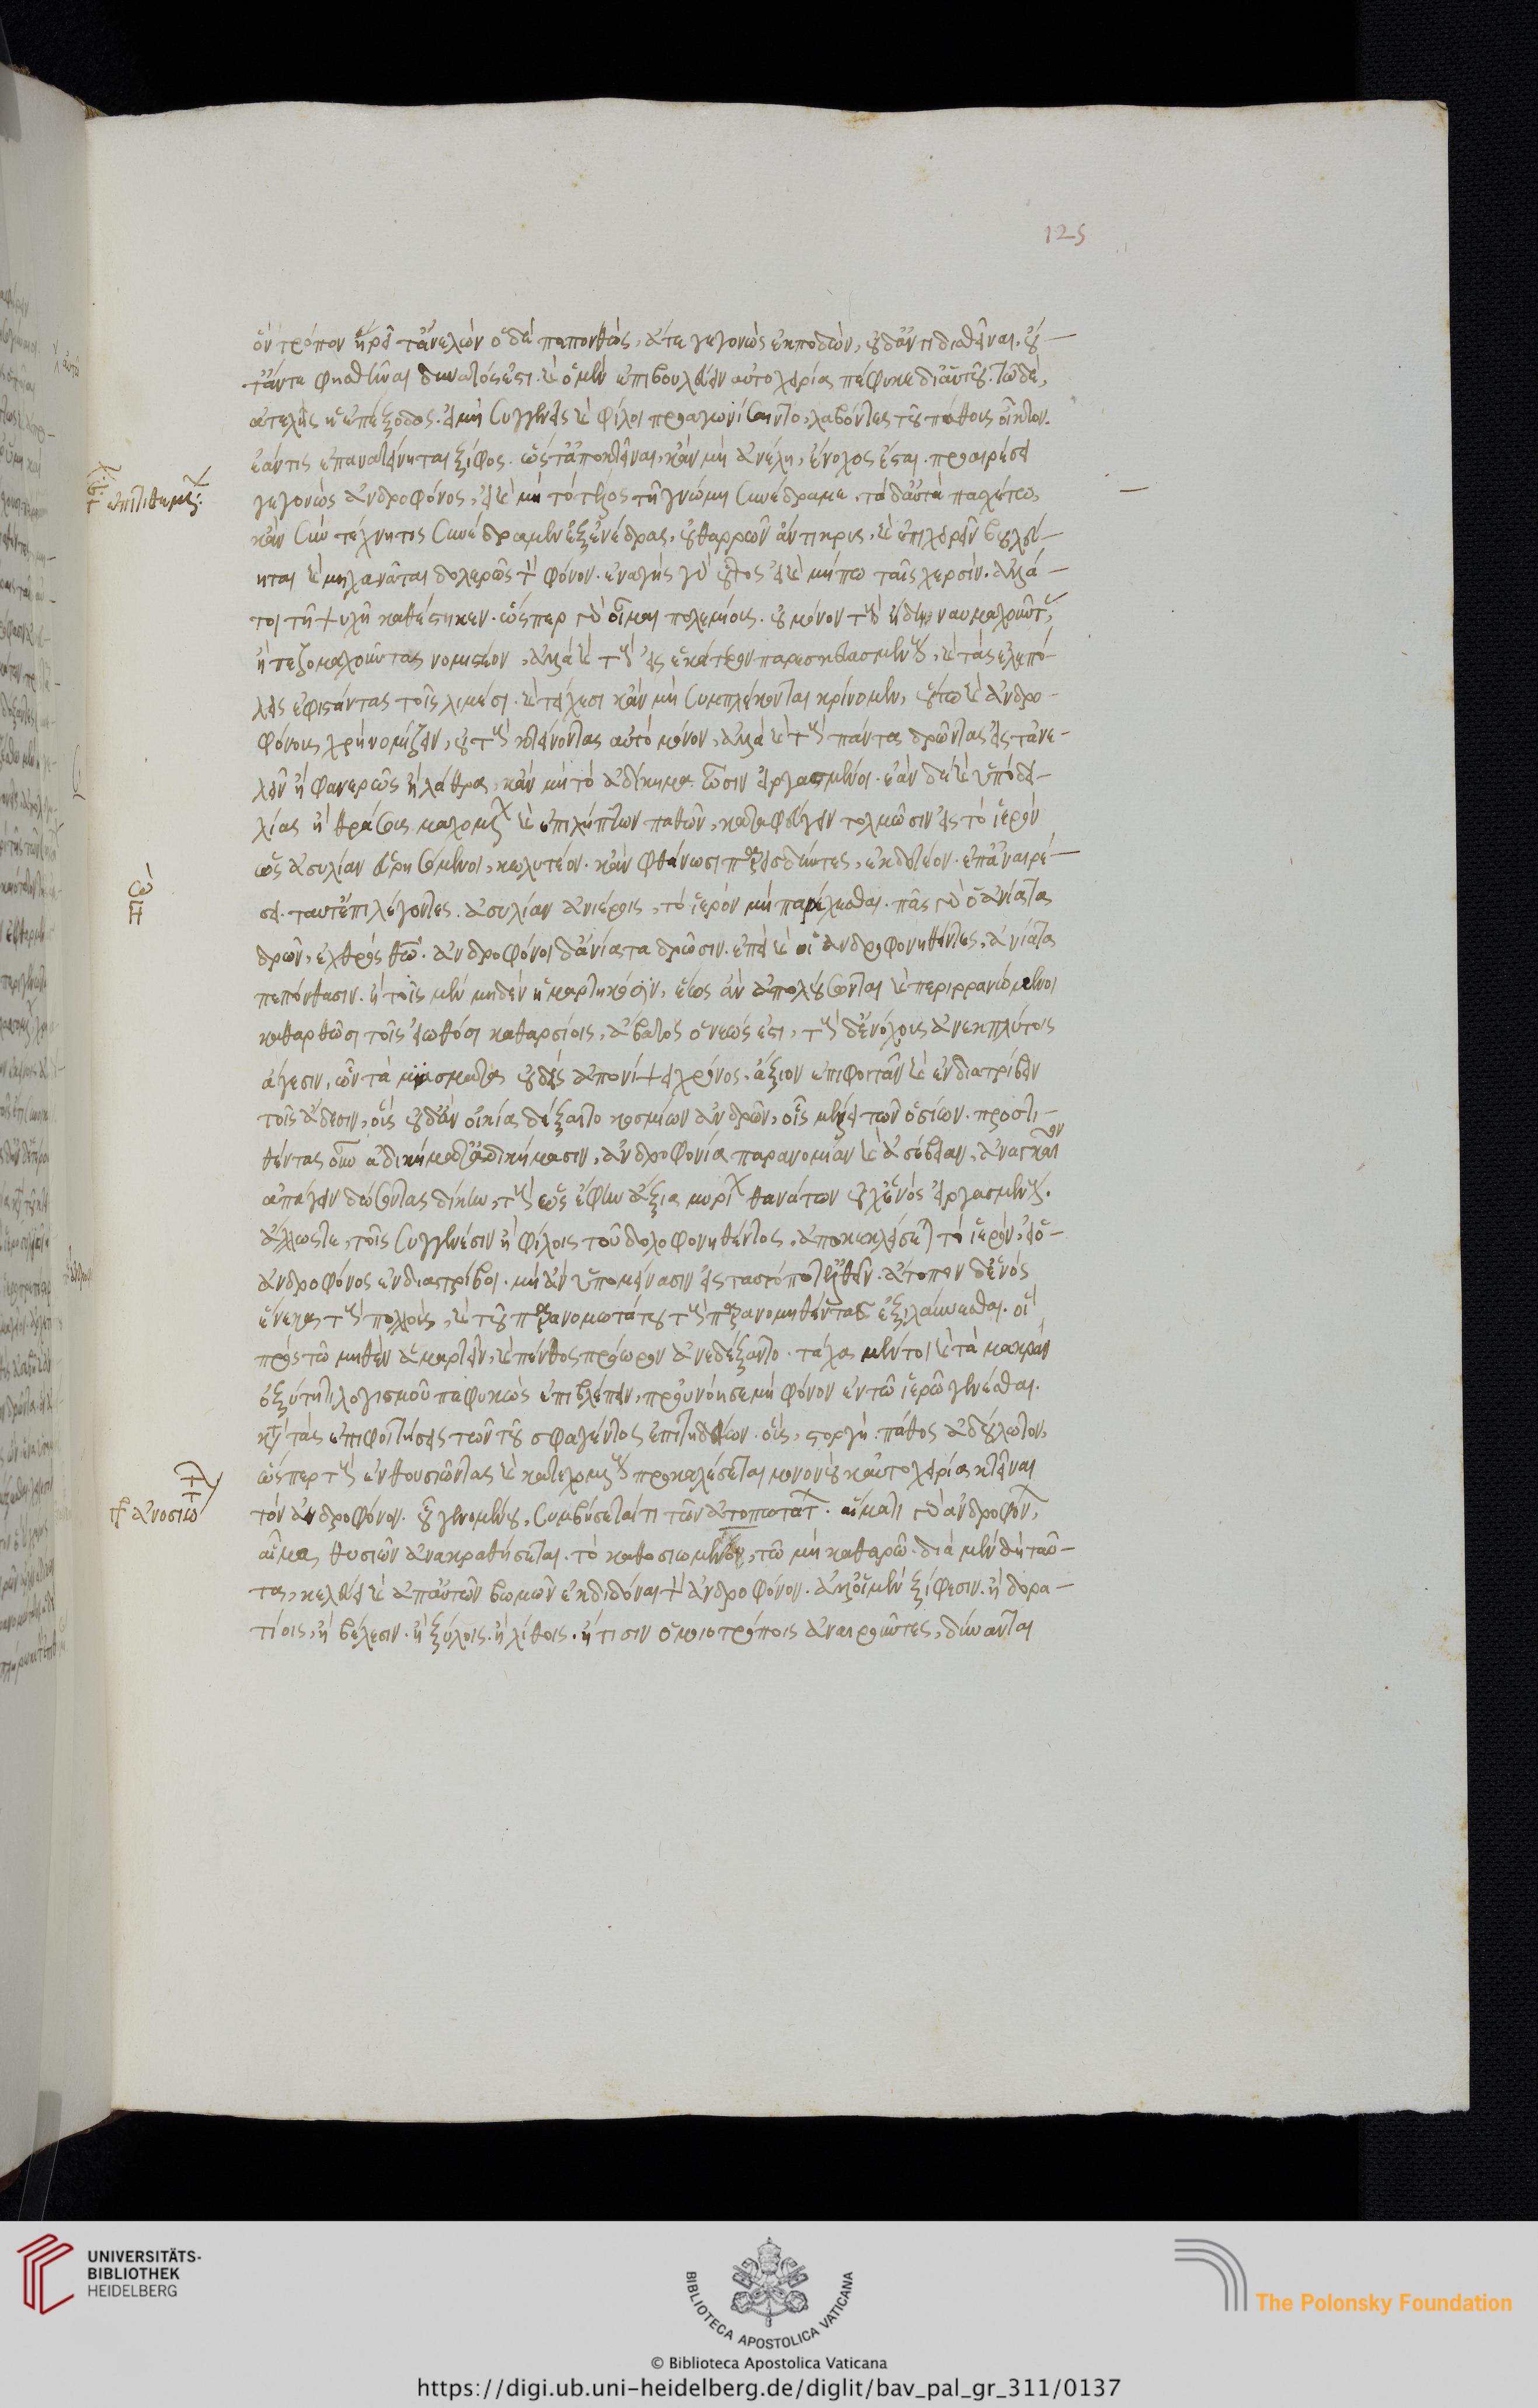 125
ὃν τρόπον ᾕρει τ' ἀνελὼν ὁ δὲ πεπονθὼς, ἅτε γεγονὼς ἐκποδὼν, οὐδ' ἀντιδιαθεῖναι. οὐ-
τ' ἀντεφησθῆναι δυνατός ἐστι. καὶ ὁ μὲν ἐπιβουλεύειν αὐτοχειρίας πέφυκε δι' αὑτοῦ. τῷ δὲ,
ἀτελὴς ἡ ἐπέξοδος. εἰ μὴ συγγενεῖς καὶ φίλοι προαγωνίσαιντο, λαβόντες τοῦ πάθους οἶκτον.
ἐάν τις ἐπανατείνηται ξίφος. ὡς τ' ἀποκτεῖναι, κἂν μὴ ἀνέλῃ, ἔνοχος ἔσται. προαιρέσει
γεγονὼς ἀνδροφόνος, εἰ καὶ μὴ τὸ τέλος τῇ γνώμῃ συνέδραμε. τὰ δ' αὐτὰ πασχέτω,
ἐξ ἐνέδρας, οὐ θαρρῶν ἄντικρυς, καὶ ἐπιχειρεῖν βουλεύ-
ηται καὶ μηχανᾶται δολερῶς τὸν φόνον. ἐναγὴς γὰρ οὗτος εἰ καὶ μήπω ταῖς χερσὶν. ἀλλά
τοι τῇ ψυχῇ καθέστηκεν. ὥσπερ γὰρ οἶμαι πολεμίους. οὐ μόνον τοὺς ἤδη ναυμαχοῦντας,
ἢ πεζομαχοῦντας νομιστέον, ἀλλὰ καὶ τοὺς εἰς ἑκάτερον παρεσκευασμένους, καὶ τὰς ἑλεπό-
λεις ἐφιστάντας τοῖς λιμέσι. καὶ τείχεσι κἂν μὴ συμπλέκωνται κρίνομεν, οὕτω καὶ ἀνδρο-
φόνους χρὴ νομίζειν, οὐ τοὺς κτείνοντας αὐτὸ μόνον, ἀλλὰ καὶ τοὺς πάντα δρῶντας εἰς τ' ἀνε-
λεῖν ἢ φανερῶς ἢ λάθρα, κἂν μὴ τὸ ἀδίκημα ὦσιν εἰργασμένοι. ἐὰν δὲ καὶ ὑπὸ δει-
λίας ἢ θράσους μαχομένων καὶ ἐπιλήπτων παθῶν, καταφεύγειν τολμῶσιν εἰς τὸ ἱερὸν
ὡς ἀσυλίαν εὑρησόμενοι, κωλυτέον. κἂν φθάνωσι παρεισδύντες, ἐκδοτέον. ἐπ' ἀναιρέ-
σει. ταῦτ' ἐπιλέγοντες. ἀσυλίαν ἀνιέροις, τὸ ἱερὸν μὴ παρέχεσθαι. πᾶς γὰρ ὁ ἀνίατα
δρῶν, ἐχθρὸς θεῷ. ἀνδροφόνοι δ' ἀνίατα δρῶσιν. ἐπεὶ καὶ οἱ ἀνδροφονηθέντες, ἀνίατα
πεπόνθασιν. ἢ τοῖς μὲν μηδὲν ἡμαρτηκόσιν, ἕως ἂν ἀπολούσωνται καὶ περιρρανάμενοι
καθαρθῶσι τοῖς εἰωθόσι καθαρσίοις, ἄβατος ὁ νεώς ἐστι, τοὺς δ' ἐνόχους ἀνεκπλύτοις
ἄγεσιν, ὧν τὰ μιάσματα οὐδεὶς ἀπονίψει χρόνος. ἄξιον ἐπιφοιτᾶν καὶ ἐνδιατρίβειν
τοῖς ἕδεσιν, οὓς οὐδ' ἂν οἰκία δέξαιτο κοσμίων ἀνδρῶν, οἷς μέλει τῶν ὁσίων. προστι-
θέντας οὖν ἀδικήματα ἀδικήμασιν, ἀνδροφονίᾳ παρανομίαν καὶ ἀσέβειαν, ἀναγκαῖον
ἀπάγειν δώσοντας δίκην, τοὺς ὡς ἔφην ἄξια μυρίων θανάτων οὐχ ἑνὸς εἰργασμένους.
ἄλλως τε, τοῖς συγγενέσιν ἢ φίλοις τοῦ δολοφονηθέντος, ἀποκεκλείσεται τὸ ἱερὸν, εἰ ὁ
ἀνδροφόνος ἐνδιατρίβοι. μὴ ἂν ὑπομείνασιν εἰς ταὐτό ποτ' ἐλθεῖν. ἄτοπον δ' ἑνὸς
ἕνεκα τοὺς πολλοὺς, καὶ τοῦ παρανομωτάτου τοὺς παρανομηθέντας ἐξελαύνεσθαι. οἳ
πρὸς τῷ μηδὲν ἁμαρτεῖν, καὶ πένθος πρόωρον ἀνεδέξαντο. τάχα μέντοι καὶ τὰ μακρὰν
ὀξύτητι λογισμοῦ πεφυκὼς ἐπιβλέπειν, προυνόησε μὴ φόνον ἐν τῷ ἱερῷ γενέσθαι.
κατὰ τὰς ἐπιφοιτήσεις τῶν τοῦ σφαγέντος ἐπιτηδείων. οὓς, στοργὴ. πάθος ἀδούλωτον,
ὥσπερ τοὺς ἐνθουσιῶντας καὶ κατεχομένους προκαλέσεται μονονοὺ καὐτοχειρίᾳ κτεῖναι
τὸν ἀνδροφόνον. οὗ γενομένου, συμβήσεταί τι τῶν ἀτοπωτάτων. αἵματι γὰρ ἀνδροφόνων,
αἷμα, θυσιῶν ἀνακραθήσεται. τὸ καθωσιωμένον, τῷ μὴ καθαρῷ. διὰ μὲν δὴ ταῦ-
τα, κελεύει καὶ ἀπ' αὐτῶν βωμῶν ἐκδιδόναι τὸν ἀνδροφόνον. ἀλλ' οἱ μὲν ξίφεσιν. ἢ δορα-
τίοις, ἢ βέλεσιν. ἢ ξύλοις. ἢ λίθοις. ἤ τισιν ὁμοιοτρόποις ἀναιροῦντες, δύνανται
UNIVERSITÄTS-
BIBLIOTHEK
HEIDELBERG
BIBLIOTECA APOSTOLICA VATICANA
The Polonsky Foundation
© Biblioteca Apostolica Vaticana
https://digi.ub.uni-heidelberg.de/diglit/bav_pal_gr_311/0137